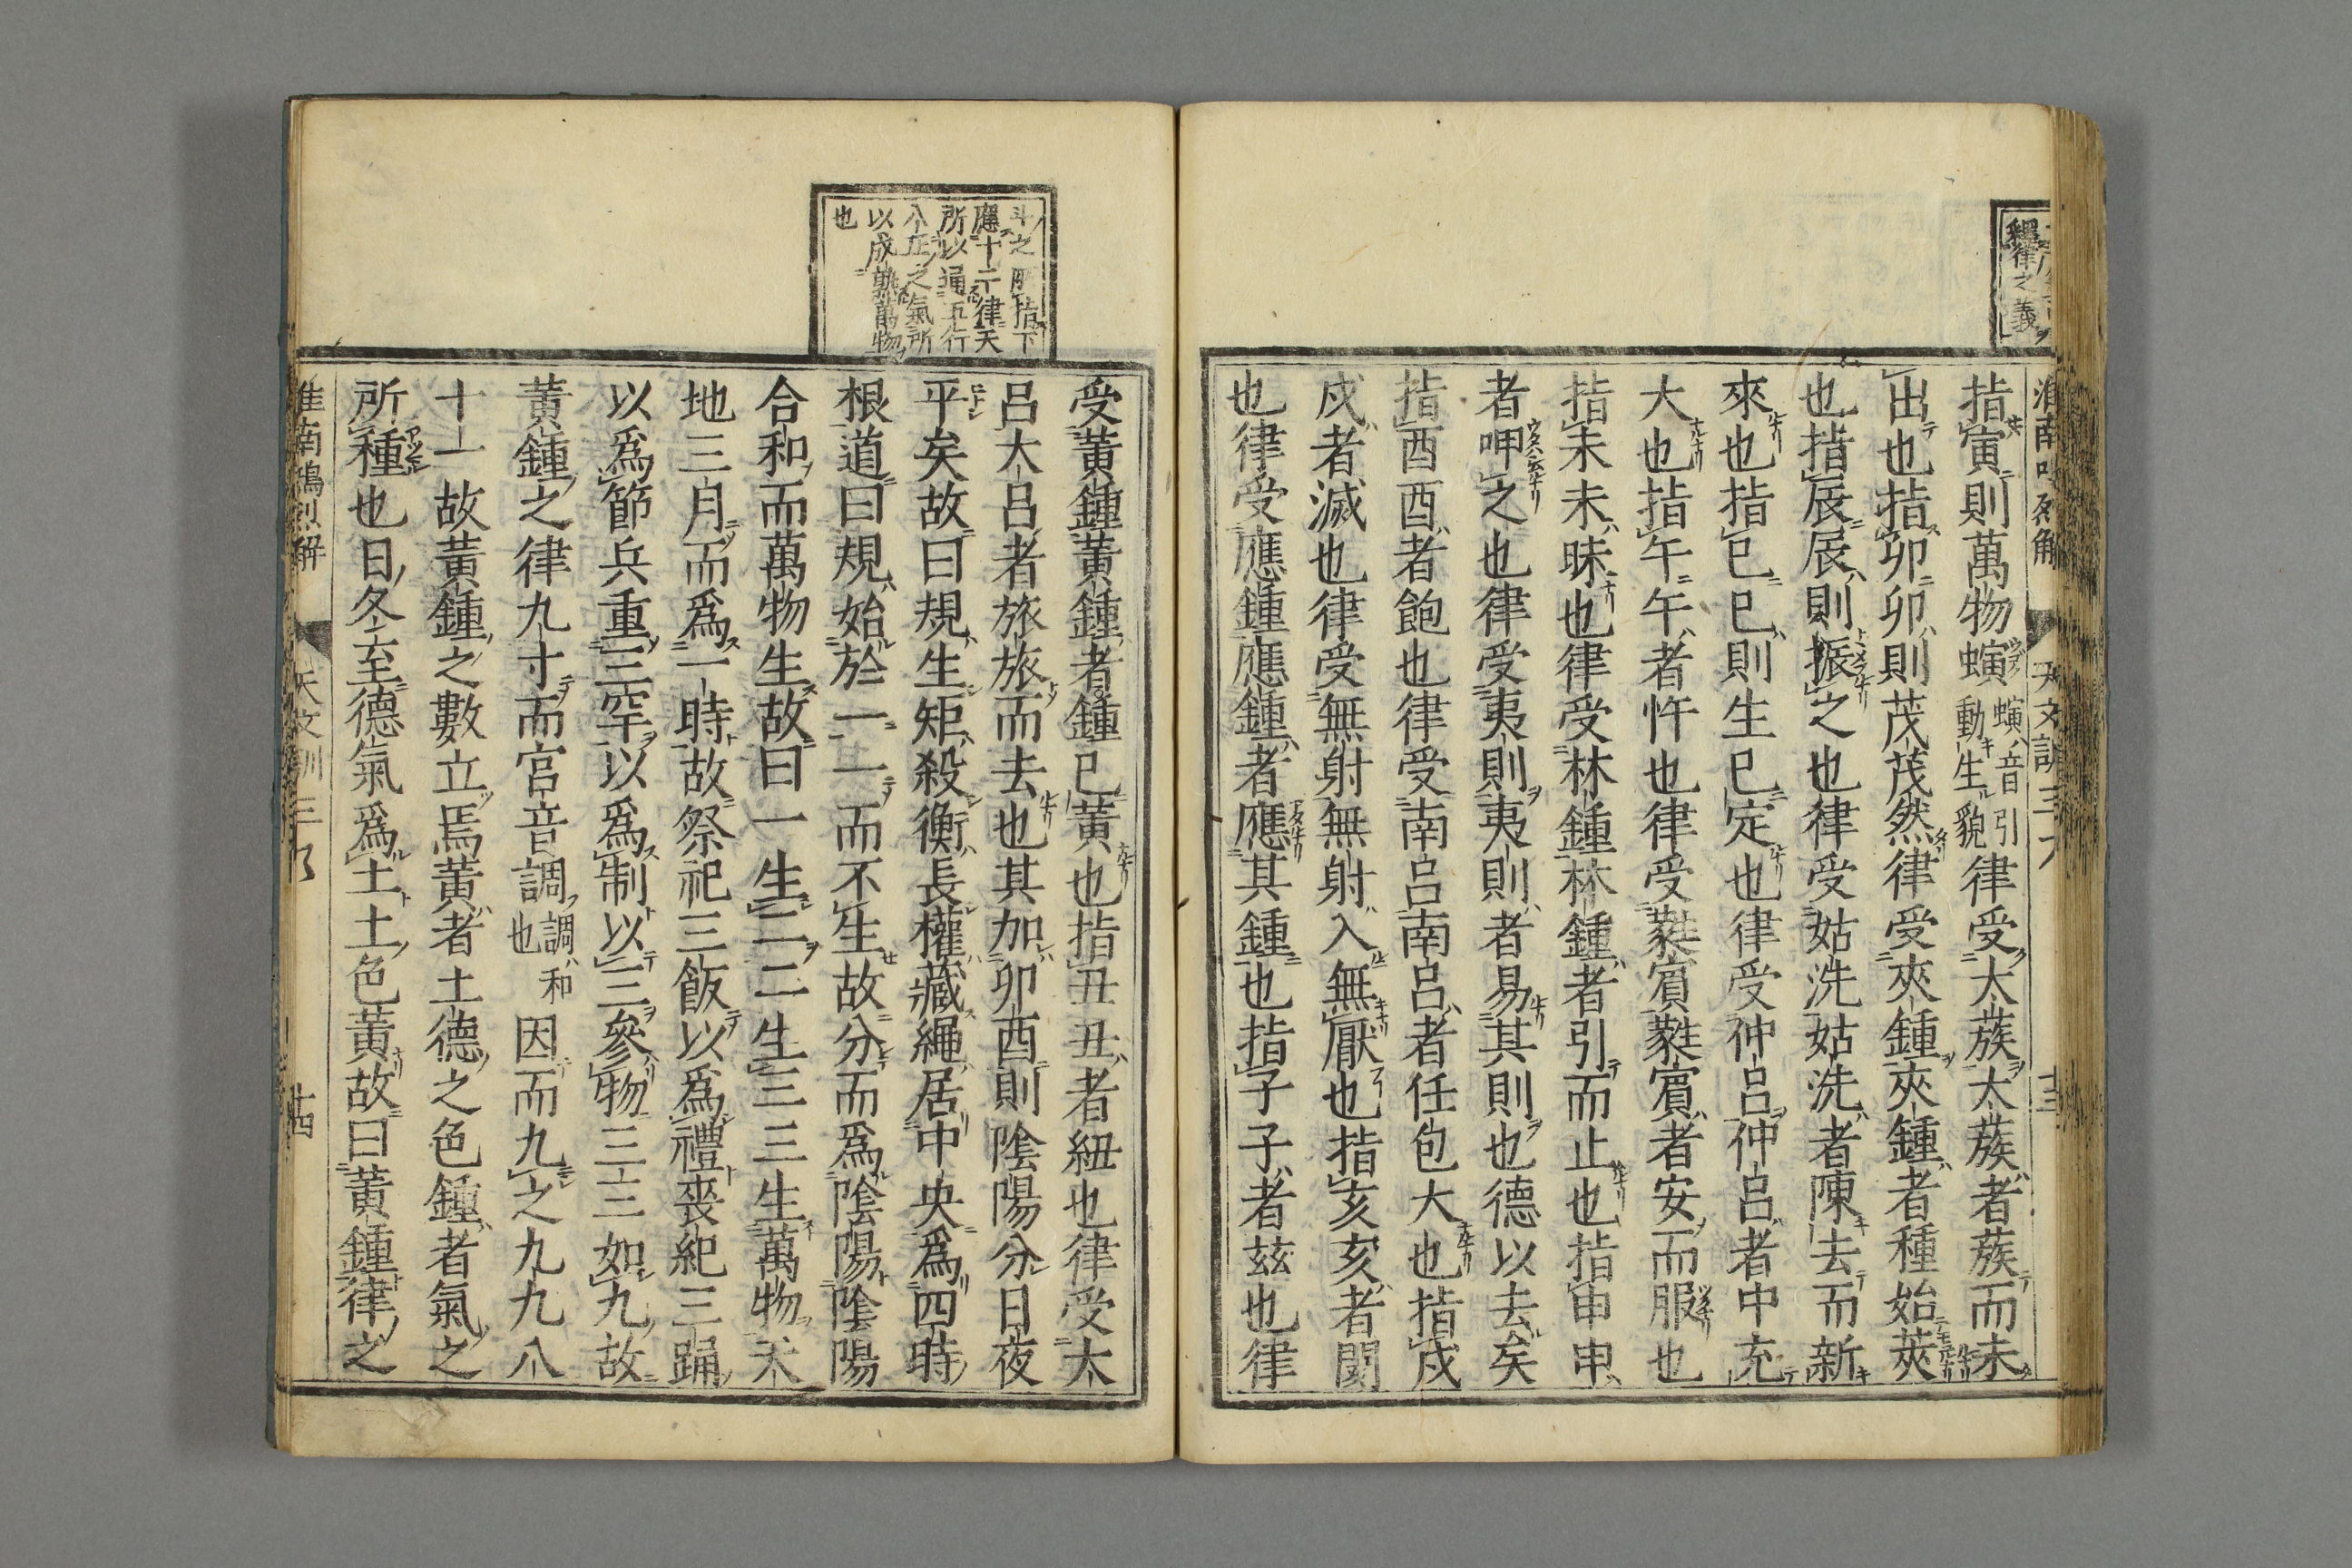 釋律之義
指寅則萬物螾螾音引動生貌律受太蔟太蔟者蔟而未
出也指卯卯則茂茂然律受夾鍾夾鍾者種始莢
也指辰辰則振之也律受姑洗姑洗者陳去而新
來也指巳巳則生巳定也律受仲呂仲呂者中充
大也指午午者忤也律受蕤賓蕤賓者安而服也
指未未昧也律受林鍾林鍾者引而止也指申申
者呻之也律受夷則夷則者易其則也德以去矣
指酉酉者飽也律受南呂南呂者任包大也指戌
戌者滅也律受無射無射入無厭也指亥亥者閡
也律受應鍾應鍾者應其鍾也指子子者茲也律
斗之所指下
應十二律天
所以通五行
八正之氣所
以成熟萬物
也
受黃鍾黃鍾者鍾已黃也指丑丑者紐也律受大
呂大呂者旅旅而去也其加卯酉則陰陽分日夜
平矣故曰規生矩殺衡長權藏繩居中央爲四時
根道曰規始於一一而不生故分而爲陰陽陰陽
合和而萬物生故曰一生二二生三三生萬物天
地三月而爲一時故祭祀三飯以爲禮喪紀三踊
以爲節兵重三罕以爲制以三參物三三如九故
黃鍾之律九寸而宮音調調和也因而九之九九八
十一故黃鍾之數立焉黃者土德之色鍾者氣之
所種也日冬至德氣爲土土色黃故曰黃鍾律之
淮南鴻烈解 天文訓三 十四